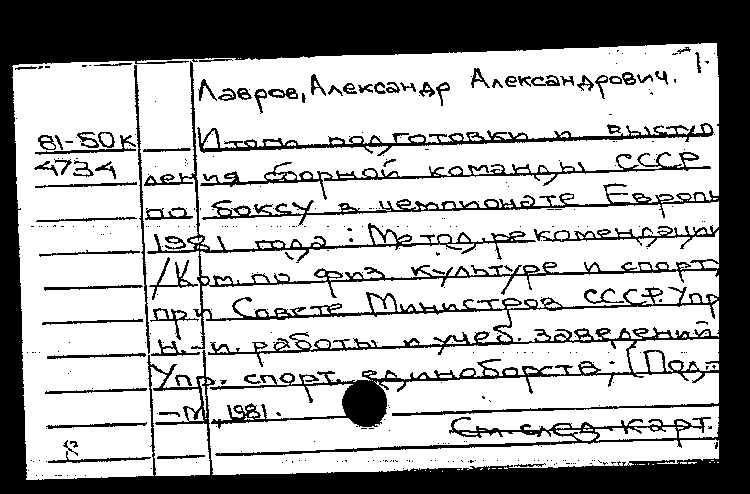 1.
Лавров, Александр Александрович.
81-50к Итоги подготовки и выступ
4734 ления сборной команды СССР
по боксу в чемпионате Европы
1981 года : Метод. рекомендации
/Ком. по физ. культуре и спорту
при Совете Министров СССР. Упр.
н.-и. работы и учеб. заведений.
Упр. спорт. единоборств; [Под-
-М., 1981.
См. след. карт.